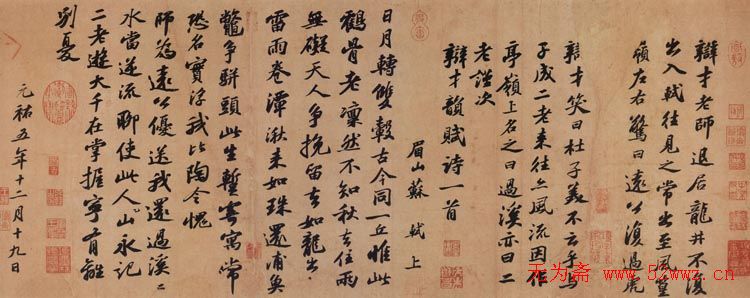 辯才老師退居龍井不復
出入軾往見之常出至風篁
嶺左右驚曰遠公復過虎
辯才笑曰杜子美不云乎與
子成二老來往亦風流因作
亭嶺上名之曰過溪亦曰二
老謹次
辯才韻賦詩一首
眉山蘇軾上
日月轉雙轂古今同一丘惟此
鶴骨老凜然不知秋去住兩
無礙天人爭挽留去如龍出
雷雨卷潭湫來如珠還浦魚
鼈爭駢頭此生暫寄寓常
恐名實浮我比陶令愧
師為遠公優送我還過溪〻
水當逆流聊使此人山永記
二老遊大千在掌握寧有離
別憂
元祐五年十二月十九日
天为斋 www.52wwz.cn